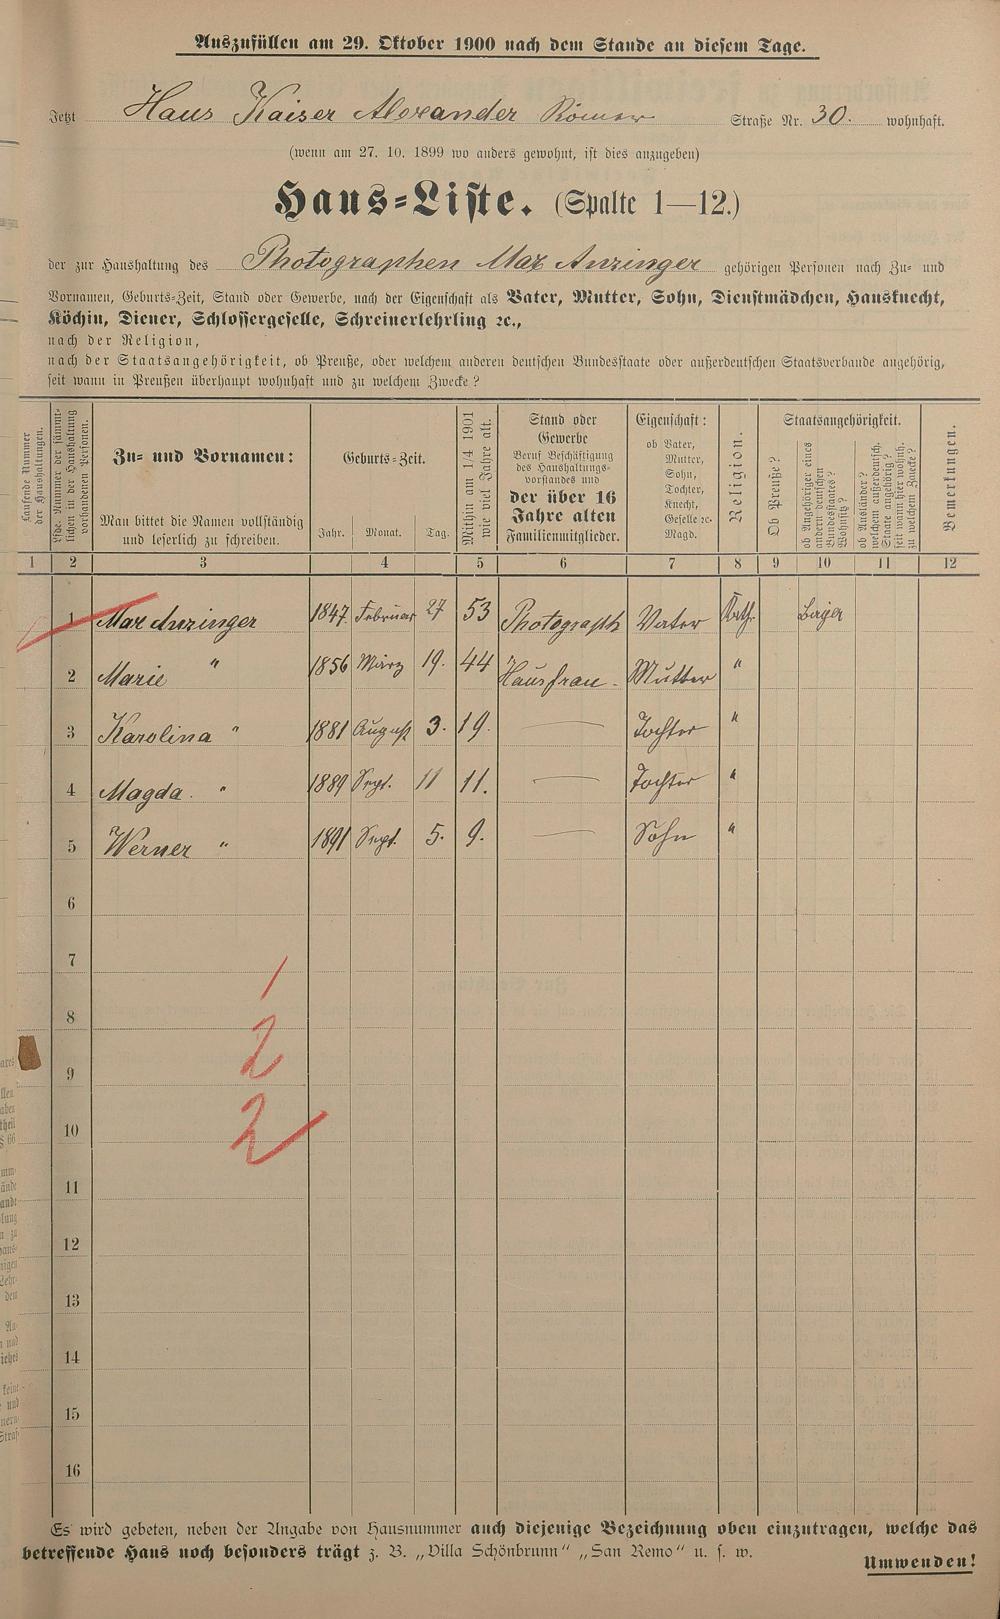 Auszufüllen am 29. Oktober 1900 nach dem Stande an diesem Tage.
Jetzt Haus Kaiser Alexander Römer Straße Nr. 30. wohnhaft.
(wenn am 27. 10. 1899 wo anders gewohnt, ist dies anzugeben)
Haus=Liste. (Spalte 1—12.)
der zur Haushaltung des Photographen Max Anzinger gehörigen Personen nach Zu- und
Vornamen, Geburts-Zeit, Stand oder Gewerbe, nach der Eigenschaft als Vater, Mutter, Sohn, Dienstmädchen, Hausknecht,
Köchin, Diener, Schlossergeselle, Schreinerlehrling ꝛc.,
nach der Religion,
nach der Staatsangehörigkeit, ob Preuße, oder welchem anderen deutschen Bundesstaate oder außerdeutschen Staatsverbande angehörig,
seit wann in Preußen überhaupt wohnhaft und zu welchem Zwecke?
Laufende Nummer
der Haushaltungen.
Lfde. Nummer der sämmt-
lichen in der Haushaltung
vorhandenen Personen.
Zu- und Vornamen:
Man bittet die Namen vollständig
und leserlich zu schreiben.
Geburts-Zeit.
Jahr. Monat. Tag.
Mithin am 1/4 1901
wie viel Jahre alt.
Stand oder
Gewerbe
Beruf Beschäftigung
des Haushaltungs-
vorstandes und
der über 16
Jahre alten
Familienmitglieder.
Eigenschaft:
ob Vater,
Mutter,
Sohn,
Tochter,
Knecht,
Geselle ꝛc.
Magd.
Religion.
Staatsangehörigkeit.
Ob Preuße?
ob Angehöriger eines
andern deutschen
Bundesstaates?
Wohnsitz?
ob Ausländer?
welchem außerdeutsch.
Staate angehörig?
seit wann hier wohnh.
zu welchem Zwecke?
Bemerkungen.
1 2 3 4 5 6 7 8 9 10 11 12
1 Max Anzinger 1847 Februar 27 53 Photograph Vater Kath.
2 Marie " 1856 März 19. 44 Hausfrau Mutter "
3 Karolina " 1881 August 3. 19. — Tochter "
4 Magda " 1889 Sept. 11 11. — Tochter "
5 Werner " 1891 Sept. 5. 9. — Sohn "
6
7
/
8
2
9
10
2
11
12
13
14
15
16
Es wird gebeten, neben der Angabe von Hausnummer auch diejenige Bezeichnung oben einzutragen, welche das
betreffende Haus noch besonders trägt z. B. „Villa Schönbrunn" „San Remo" u. s. w.
Umwenden!